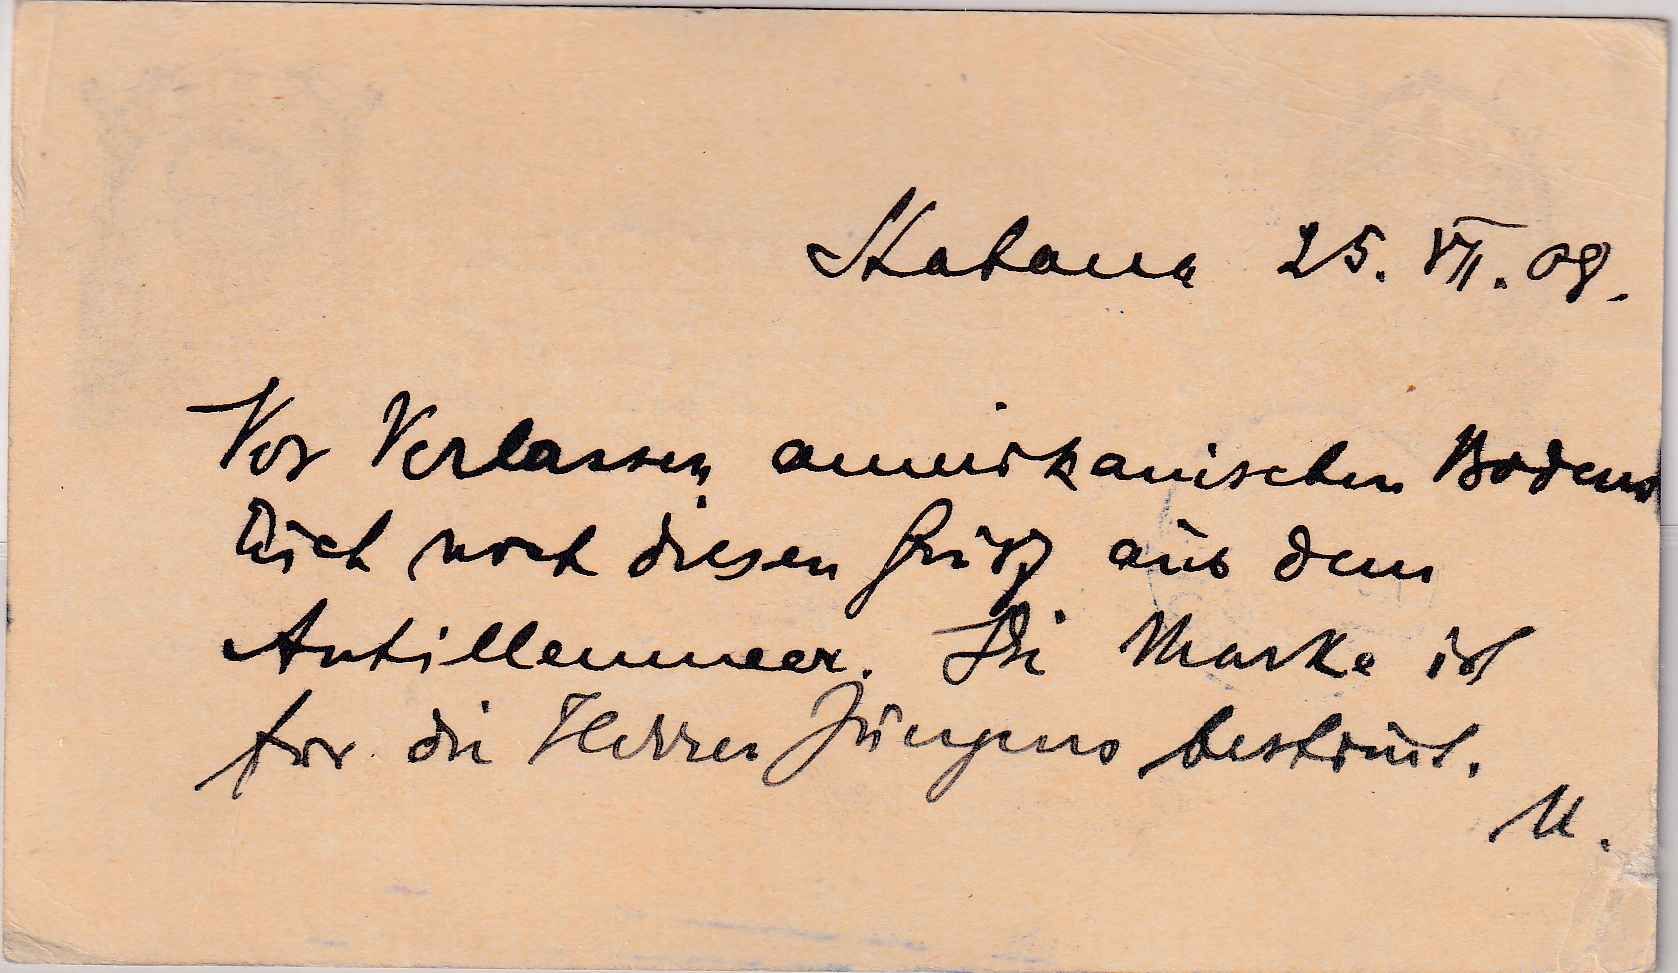 Habana 25. VII. 08.
Vor Verlassen amerikanischen Bodens
Dich noch diesen Grüß aus dem
Antillenmeer. Die Marke ist
für die Herren Jürgens bestimt.
M.